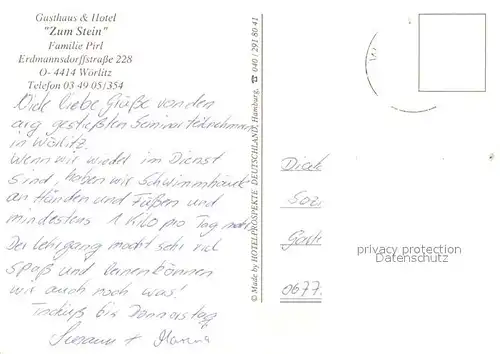 Gasthaus & Hotel
"Zum Stein"
Familie Pirl
Erdmannsdorffstraße 228
O- 4414 Wörlitz
Telefon 03 49 05/354
Viele liebe Grüße von den
arg gestreßten Seminarteilnehmern
in Wörlitz.
Wenn wir wieder im Dienst
sind, haben wir Schwimmhäute
an Händen und Füßen und
mindestens 1 Kilo pro Tag mehr.
Der Lehrgang macht sehr viel
Spaß und lernen können
wir auch noch was!
Tschüß bis Donnerstag
Susann + 
© Made by HOTELPROSPEKTE DEUTSCHLAND, Hamburg, ☎ 040 / 291 80 41
Diak
Sozi
Garte
0677
privacy protection
Datenschutz